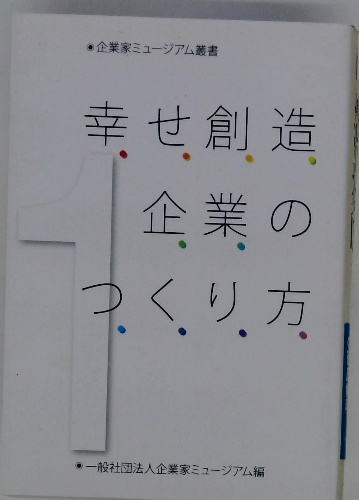 ◉企業家ミュージアム叢書
幸せ創造
企業の
つくり方
1
◉一般社団法人企業家ミュージアム編